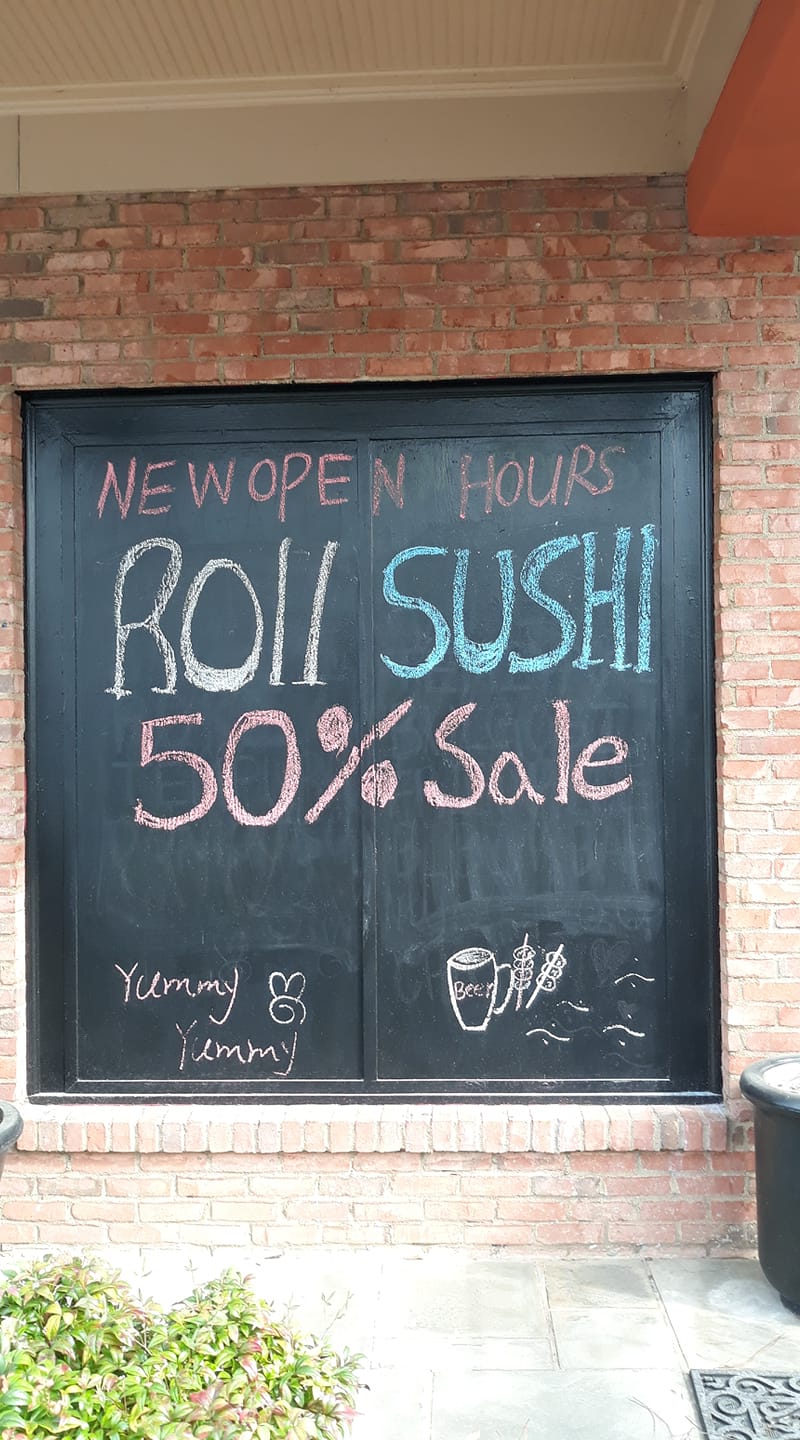 NEW OPEN HOURS
ROll SUSHI
50% Sale
Yummy
Yummy
Beer